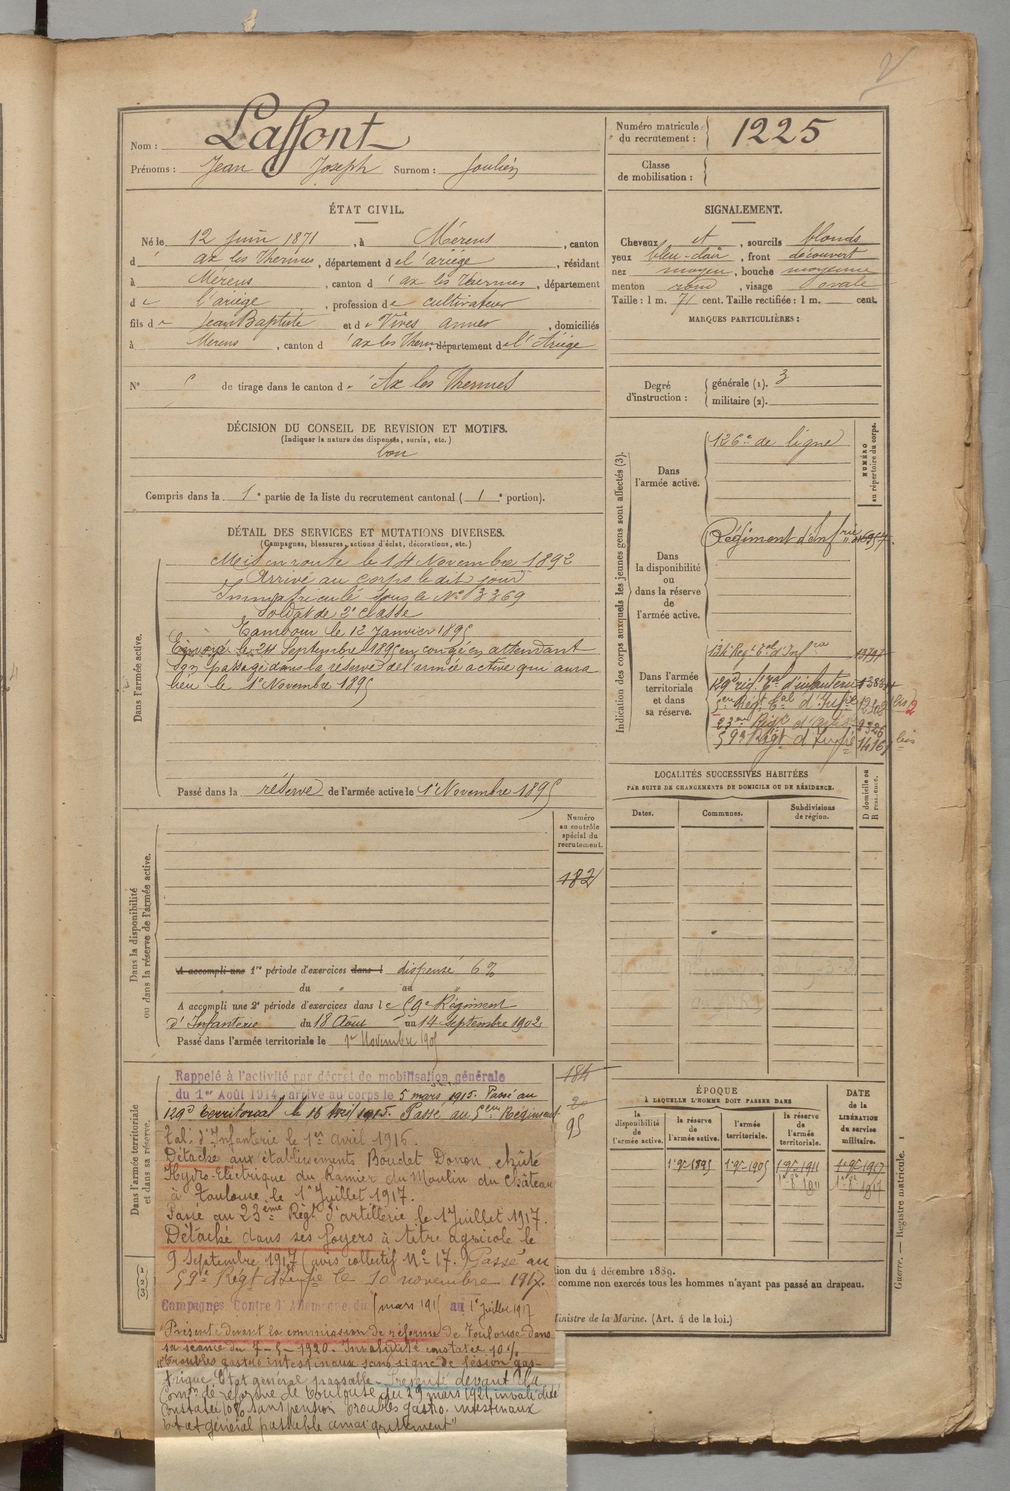 Nom : Laffont
Prénoms : Jean Joseph Surnom : Joulien
Numéro matricule du recrutement : 1225
Classe de mobilisation :
ÉTAT CIVIL.
Né le 12 juin 1871, à Mérens, canton
d' ax les Thermes, département de l'ariége, résidant
à Mérens, canton d' ax les Thermes, département
de l'ariége, profession de cultivateur
fils de Jean Baptiste et de Vives anne, domiciliés
à Mérens, canton d' ax les Therm, département de l'Ariége
N° de tirage dans le canton d' Ax les Thermes
SIGNALEMENT.
Cheveux et, sourcils blonds
yeux bleu-clair, front découvert
nez moyen, bouche moyenne
menton rond, visage ovale
Taille : 1 m. 71 cent. Taille rectifiée : 1 m. cent.
MARQUES PARTICULIÈRES :
Degré d'instruction : générale (1). 3
militaire (2).
DÉCISION DU CONSEIL DE REVISION ET MOTIFS.
(Indiquer la nature des dispenses, sursis, etc.)
bon
Compris dans la 1e partie de la liste du recrutement cantonal ( 1e portion).
DÉTAIL DES SERVICES ET MUTATIONS DIVERSES.
(Campagnes, blessures, actions d'éclat, décorations, etc.)
Dans l'armée active.
Mis en route le 14 Novembre 1892
Arrivé au corps le dit jour
Immatriculé sous le N° 3369
Soldat de 2e classe
Tambour le 12 Janvier 1895
Envoyé le 24 Septembre 1895 en congé en attendant
son passage dans la réserve de l'armée active qui aura
lieu le 1er Novembre 1895
Passé dans la réserve de l'armée active le 1er Novembre 1895
Indication des corps auxquels les jeunes gens sont affectés (3).
NUMÉRO au répertoire du corps.
Dans l'armée active.
126e de ligne
Dans la disponibilité ou dans la réserve de l'armée active.
Régiment d'Infrie
Dans l'armée territoriale et dans sa réserve.
134 Régt Tal d'Infrie
129e rég. Tal d'infanterie
5eme Régt Tal d'Infie
23me Régt d'Art
59e Régt d'Infie
LOCALITÉS SUCCESSIVES HABITÉES
PAR SUITE DE CHANGEMENTS DE DOMICILE OU DE RÉSIDENCE.
Dates. Communes. Subdivisions de région. D domicile ou R résidence.
Dans la disponibilité ou dans la réserve de l'armée active.
Numéro au contrôle spécial du recrutement.
182
A accompli une 1re période d'exercices dans l dispensé 6%
du " au "
A accompli une 2e période d'exercices dans le 59e Régiment
d'Infanterie du 18 Août au 14 Septembre 1902
Passé dans l'armée territoriale le 1er Novembre 1905
Dans l'armée territoriale et dans sa réserve.
184
95
Rappelé à l'activité par décret de mobilisation générale
du 1er Août 1914, arrivé au corps le 5 mars 1915. Passé au
129e territorial le 16 Avril 1915. Passé au 5eme Régiment
Tal. d'Infanterie le 1er Avril 1916.
Détaché aux établissements Bouclet Donon chûte
Hydro-Electrique du Ramier du Moulin du Château
à Toulouse le 1er Juillet 1917.
Passé au 23ème Régt d'artillerie le 1 Juillet 1917.
Détaché dans ses foyers à titre agricole le
9 Septembre 1917 (avis collectif N° 17. Passé au
59e Régt d'Infie le 10 novembre 1917.
Campagnes Contre l'Allemagne du 5 mars 1915 au 1er Juillet 1917
Présenté devant la commission de réforme de Toulouse dans
sa séance du 7-5-1920. Invalidité constatée 10%
"troubles gastro intestinaux sans signe de lésion gas-
trique. Etat général passable. Présenté devant la
Comon de réforme de Toulouse du 29 mars 1921, invalidité
constatée 10% sans pension troubles gastro. intestinaux
état général passable amaigrissement"
ÉPOQUE
À LAQUELLE L'HOMME DOIT PASSER DANS
la disponibilité de l'armée active. la réserve de l'armée active. l'armée territoriale. la réserve de l'armée territoriale.
DATE de la LIBÉRATION du service militaire.
1er 9bre 1895 1er 9bre 1905 1er 9bre 1911 1er 9bre 1917
1er 8bre 1911 1er 8bre 1917
ion du 4 décembre 1889.
comme non exercés tous les hommes n'ayant pas passé au drapeau.
Ministre de la Marine. (Art. 4 de la loi.)
Guerre. — Registre matricule. 1